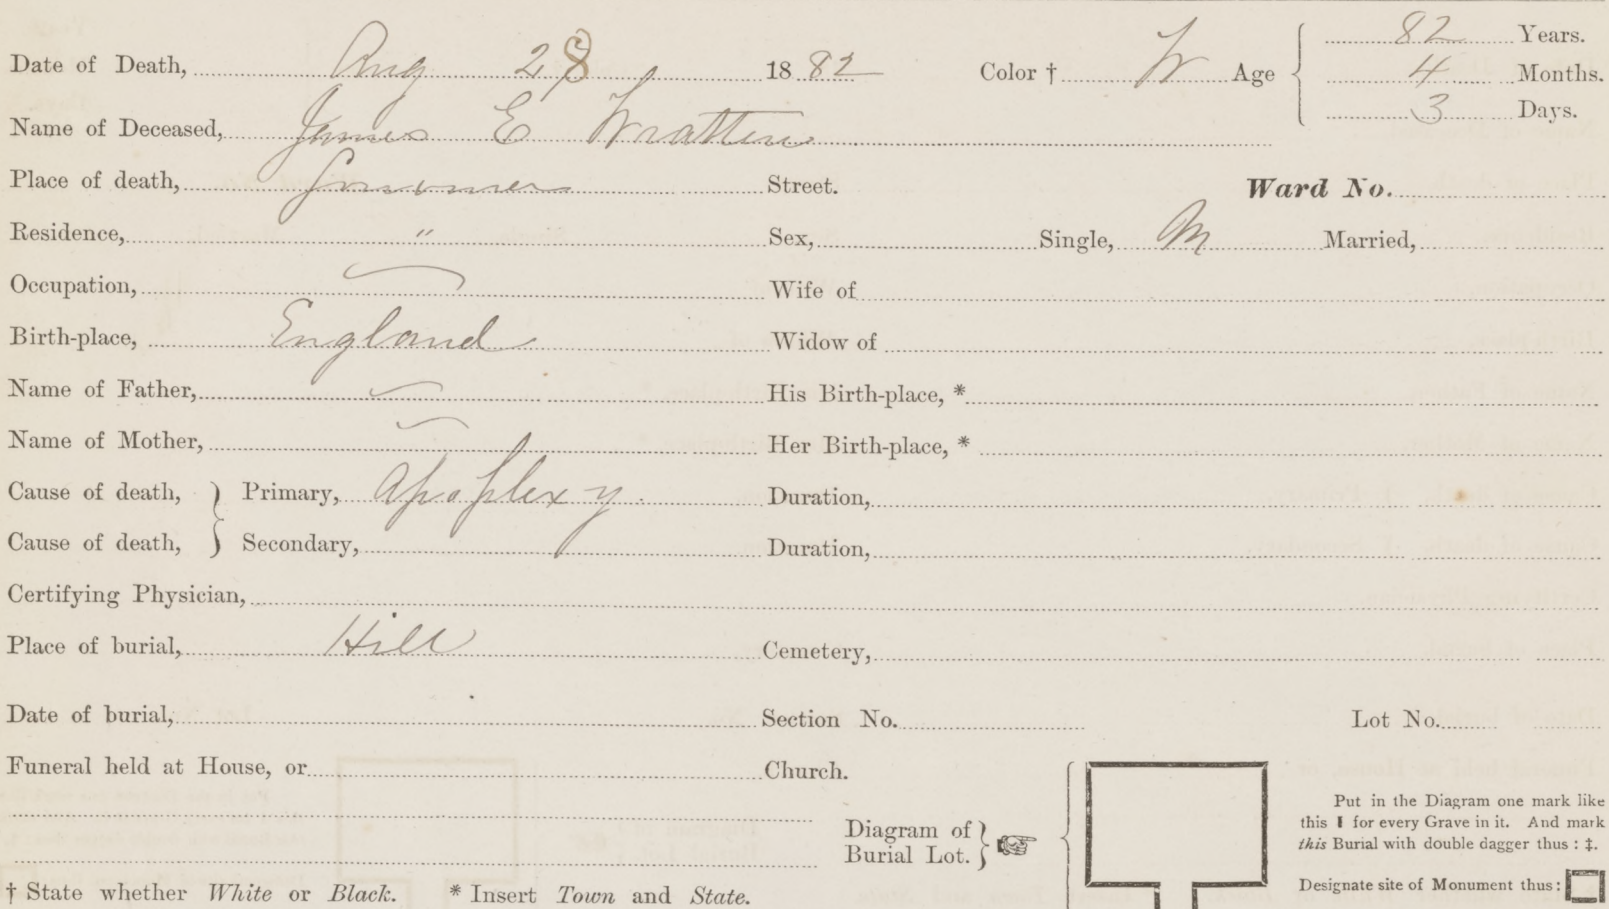 Date of Death, Aug 28 1882 Color † W Age 82 Years.
4 Months.
3 Days.
Name of Deceased, James E Wratten
Place of death, Street. Ward No.
Residence, " Sex, Single, M Married,
Occupation, Wife of
Birth-place, England Widow of
Name of Father, His Birth-place, *
Name of Mother, Her Birth-place, *
Cause of death, } Primary, Apoplexy. Duration,
Cause of death, } Secondary, Duration,
Certifying Physician,
Place of burial, Hill Cemetery,
Date of burial, Section No. Lot No.
Funeral held at House, or Church.
Diagram of
Burial Lot. } ☞
Put in the Diagram one mark like
this ❙ for every Grave in it. And mark
this Burial with double dagger thus : ‡.
Designate site of Monument thus:
† State whether White or Black. * Insert Town and State.